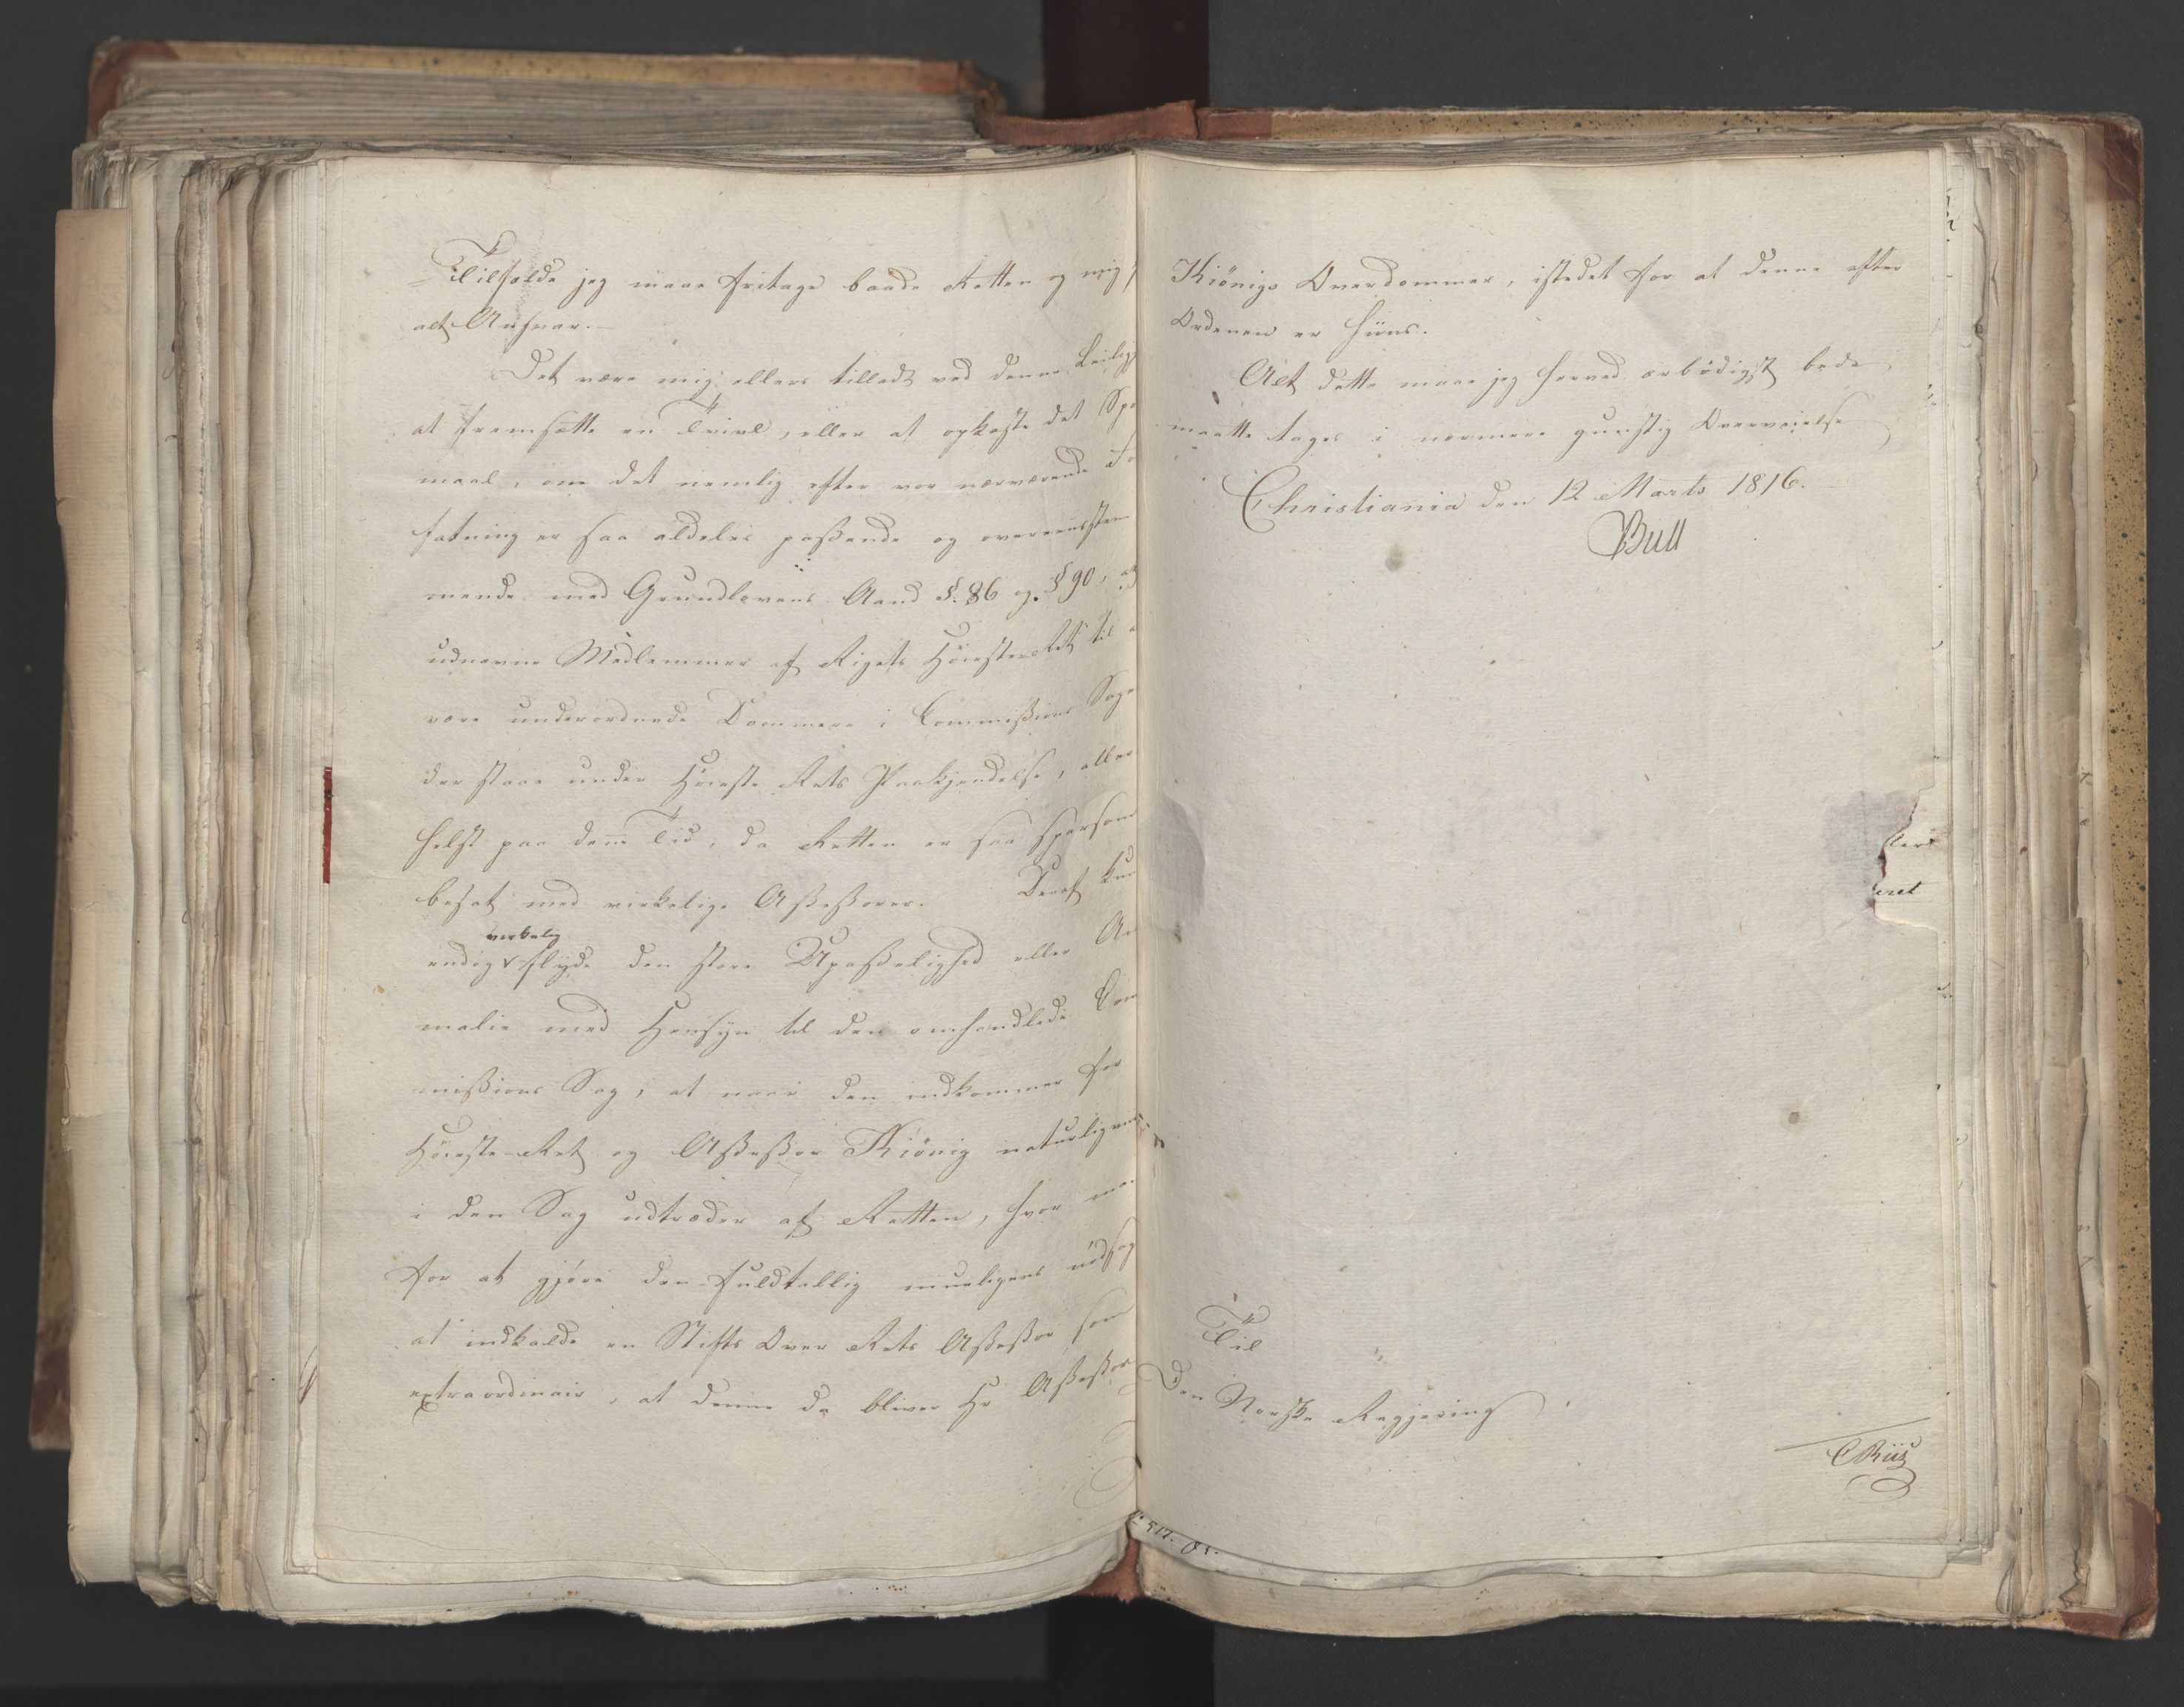 Tilfælde jeg maae fritage baade Retten og mig f
alt Ansvar. —
Det være mig ellers tilladt ved denne Leilig
at fremsætte en Tvivl, eller at opkaste det Spø
maal, om det nemlig efter vor nærværende Fo
fatning er saa aldeles passende og overeensstem
mende med Grundlovens Aand §. 86 og §90, at
udnævne Medlemmer af Rigets Høieste-Ret til a
være underordnede Dommere i Commissions Sage
der staae under Høieste Rets Paakjendelse, aller
helst paa denne Tid, da Retten er saa sparsom
besat med virkelige Assessorer. Deraf kun
endog virkelig flyde den store Upasselighed eller An
malie med Hensyn til den omhandlede Com
missions Sag, at naar den indkommer for
Høieste-Ret og Assessor Kiönig naturligvii
i den Sag udtræder af Retten, hvor ma
for at gjøre den fuldtallig mueligens nødsag
at indkalde en Stifts Over Rets Assessor som
extraordinair, at denne da bliver Hr Assessor
Kiönigs Overdommer, istedet for at denne efter
Ordenen er hans.
Alt dette maae jeg herved ærbödigst bede
maatte tages i nærmere gunstig Overveielse
Christiania den 12 Marts 1816.
Bull
Til
Den Norske Regjering
CRiis